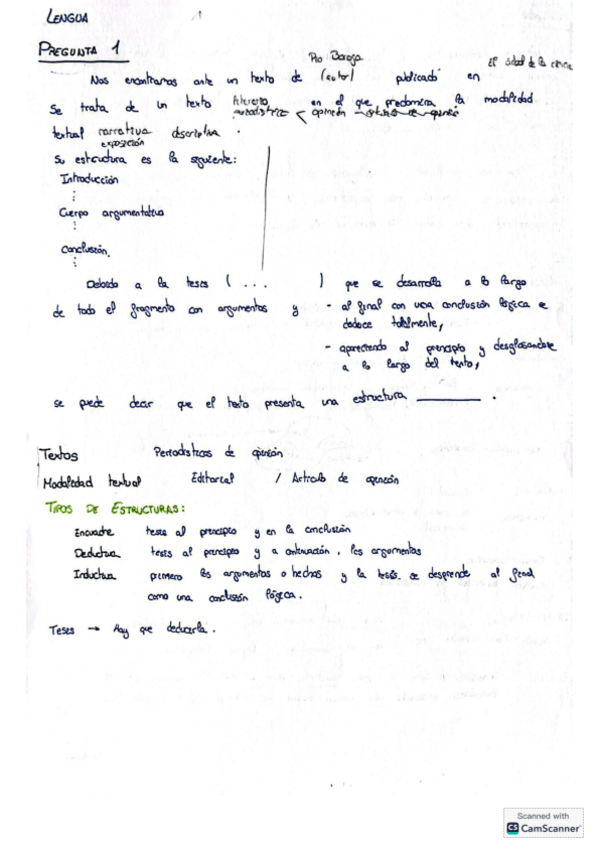 LENGUA
1
PREGUNTA 1
Pío Baroja
El árbol de la ciencia
Nos encontramos ante un texto de (autor) publicado en
Se trata de un texto literario en el que predomina la modalidad
periodístico < opinión
textual narrativa descriptiva.
exposición
Su estructura es la siguiente:
Introducción
⋮
Cuerpo argumentativo
⋮
Conclusión.
⋮
Debido a la tesis (... ) que se desarrolla a lo largo
de todo el fragmento con argumentos y - al final con una conclusión lógica se
deduce totalmente,
- apareciendo al principio y desglosandose
a lo largo del texto,
se puede decir que el texto presenta una estructura ________.
Textos Periodísticos de opinión
Modalidad textual Editorial / Artículo de opinión
TIPOS DE ESTRUCTURAS:
Encuadre tesis al principio y en la conclusión
Deductiva tesis al principio y a continuación, los argumentos
Inductiva primero los argumentos o hechos y la tesis se desprende al final
como una conclusión lógica.
Tesis → Hay que deducirla.
Scanned with
CS CamScanner